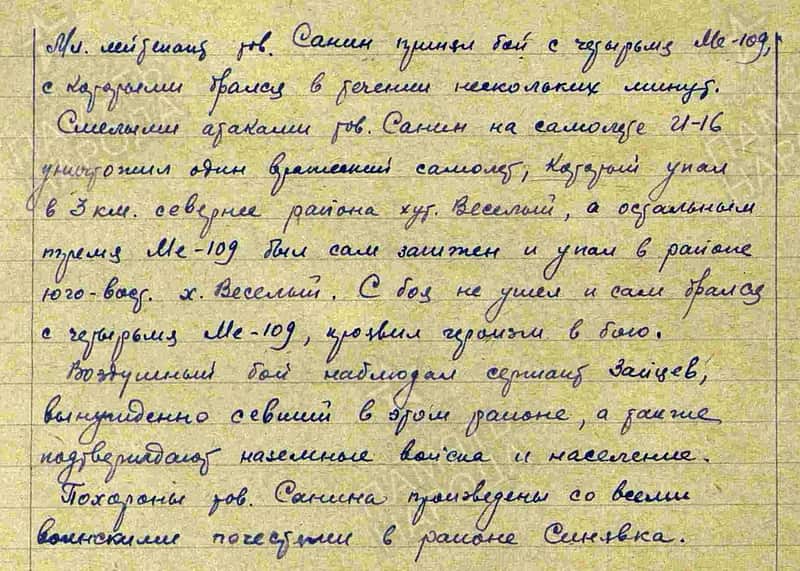 Мл. лейтенант тов. Санин принял бой с четырьмя Ме-109,
с которыми дрался в течении нескольких минут.
Смелыми атаками тов. Санин на самолете И-16
уничтожил один вражеский самолет, который упал
в 3 км. севернее района хут. Веселый, а остальным
тремя Ме-109 был сам зажжен и упал в районе
юго-вост. х. Веселый. С боя не ушел и сам дрался
с четырьмя Ме-109, проявил героизм в бою.
Воздушный бой наблюдал сержант Зайцев,
вынужденно севший в этом районе, а также
подтверждают наземные войска и население.
Похороны тов. Санина произведены со всеми
воинскими почестями в районе Синявка.